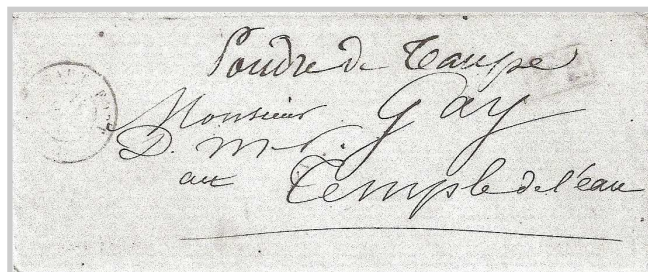 Poudre de Taupe
Monsieur Gay
D. M. P.
au Temple de l'eau